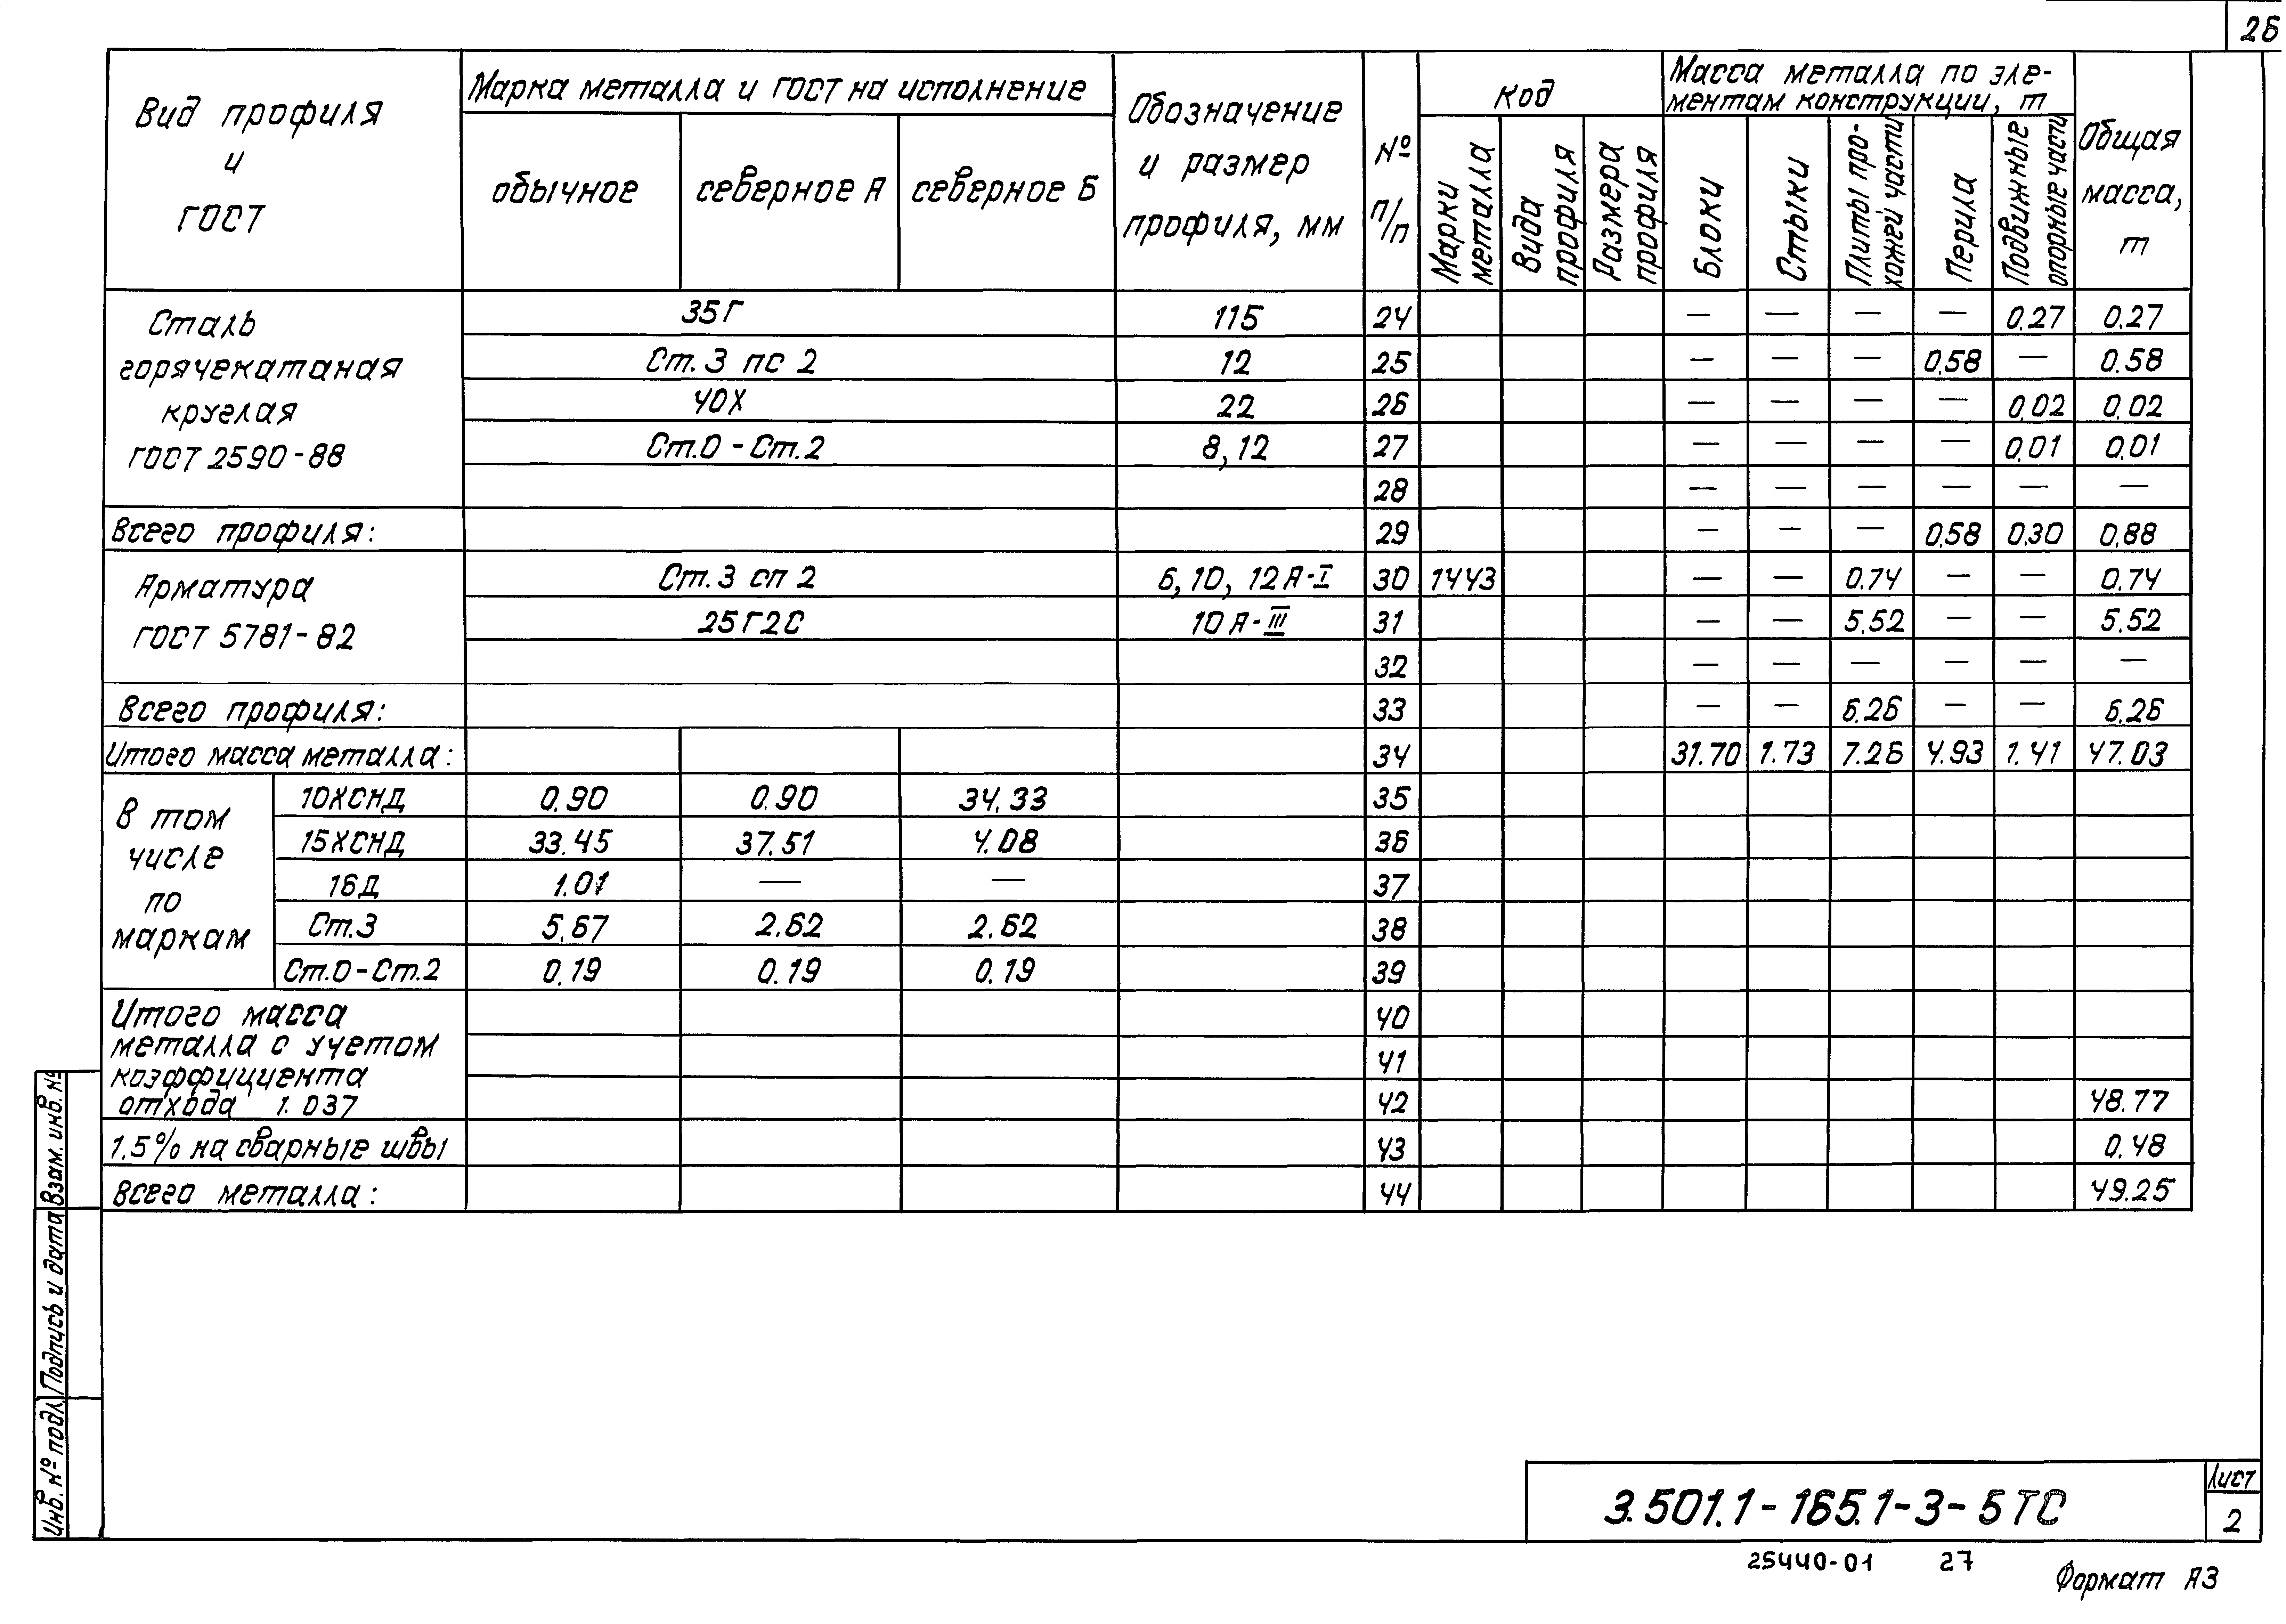 26
Вид профиля и ГОСТ
Марка металла и ГОСТ на исполнение
обычное
северное А
северное Б
Обозначение и размер профиля, мм
№ п/п
Код
Марки металла
Вида профиля
Размера профиля
Масса металла по эле-
ментам конструкции, т
Блоки
Стыки
Плиты про-
хожей части
Перила
Подвижные
опорные части
Общая масса, т
Сталь
горячекатаная
круглая
ГОСТ 2590-88
35Г 115 24 — — — — 0.27 0.27
Ст.3 пс 2 12 25 — — — 0.58 — 0.58
40Х 22 26 — — — — 0.02 0.02
Ст.0 - Ст.2 8,12 27 — — — — 0.01 0.01
28 — — — — — —
Всего профиля: 29 — — — 0.58 0.30 0.88
Арматура
ГОСТ 5781-82
Ст.3 сп 2 6, 10, 12 А-I 30 1443 — — 0.74 — — 0.74
25Г2С 10 А-III 31 — — 5.52 — — 5.52
32 — — — — — —
Всего профиля: 33 — — 6.26 — — 6.26
Итого масса металла: 34 31.70 1.73 7.26 4.93 1.41 47.03
В том
числе
по
маркам
10ХСНД 0.90 0.90 34.33 35
15ХСНД 33.45 37.51 4.08 36
16Д 1.01 — — 37
Ст.3 5.67 2.62 2.62 38
Ст.0-Ст.2 0.19 0.19 0.19 39
Итого масса 40
металла с учетом
коэффициента 41
отхода 1.037 42 48.77
1.5% на сварные швы 43 0.48
Всего металла: 44 49.25
Взам. инв. №
Подпись и дата
Инв. № подл.
3.501.1-165.1-3-5ТС
Лист
2
25440-01 27
Формат А3